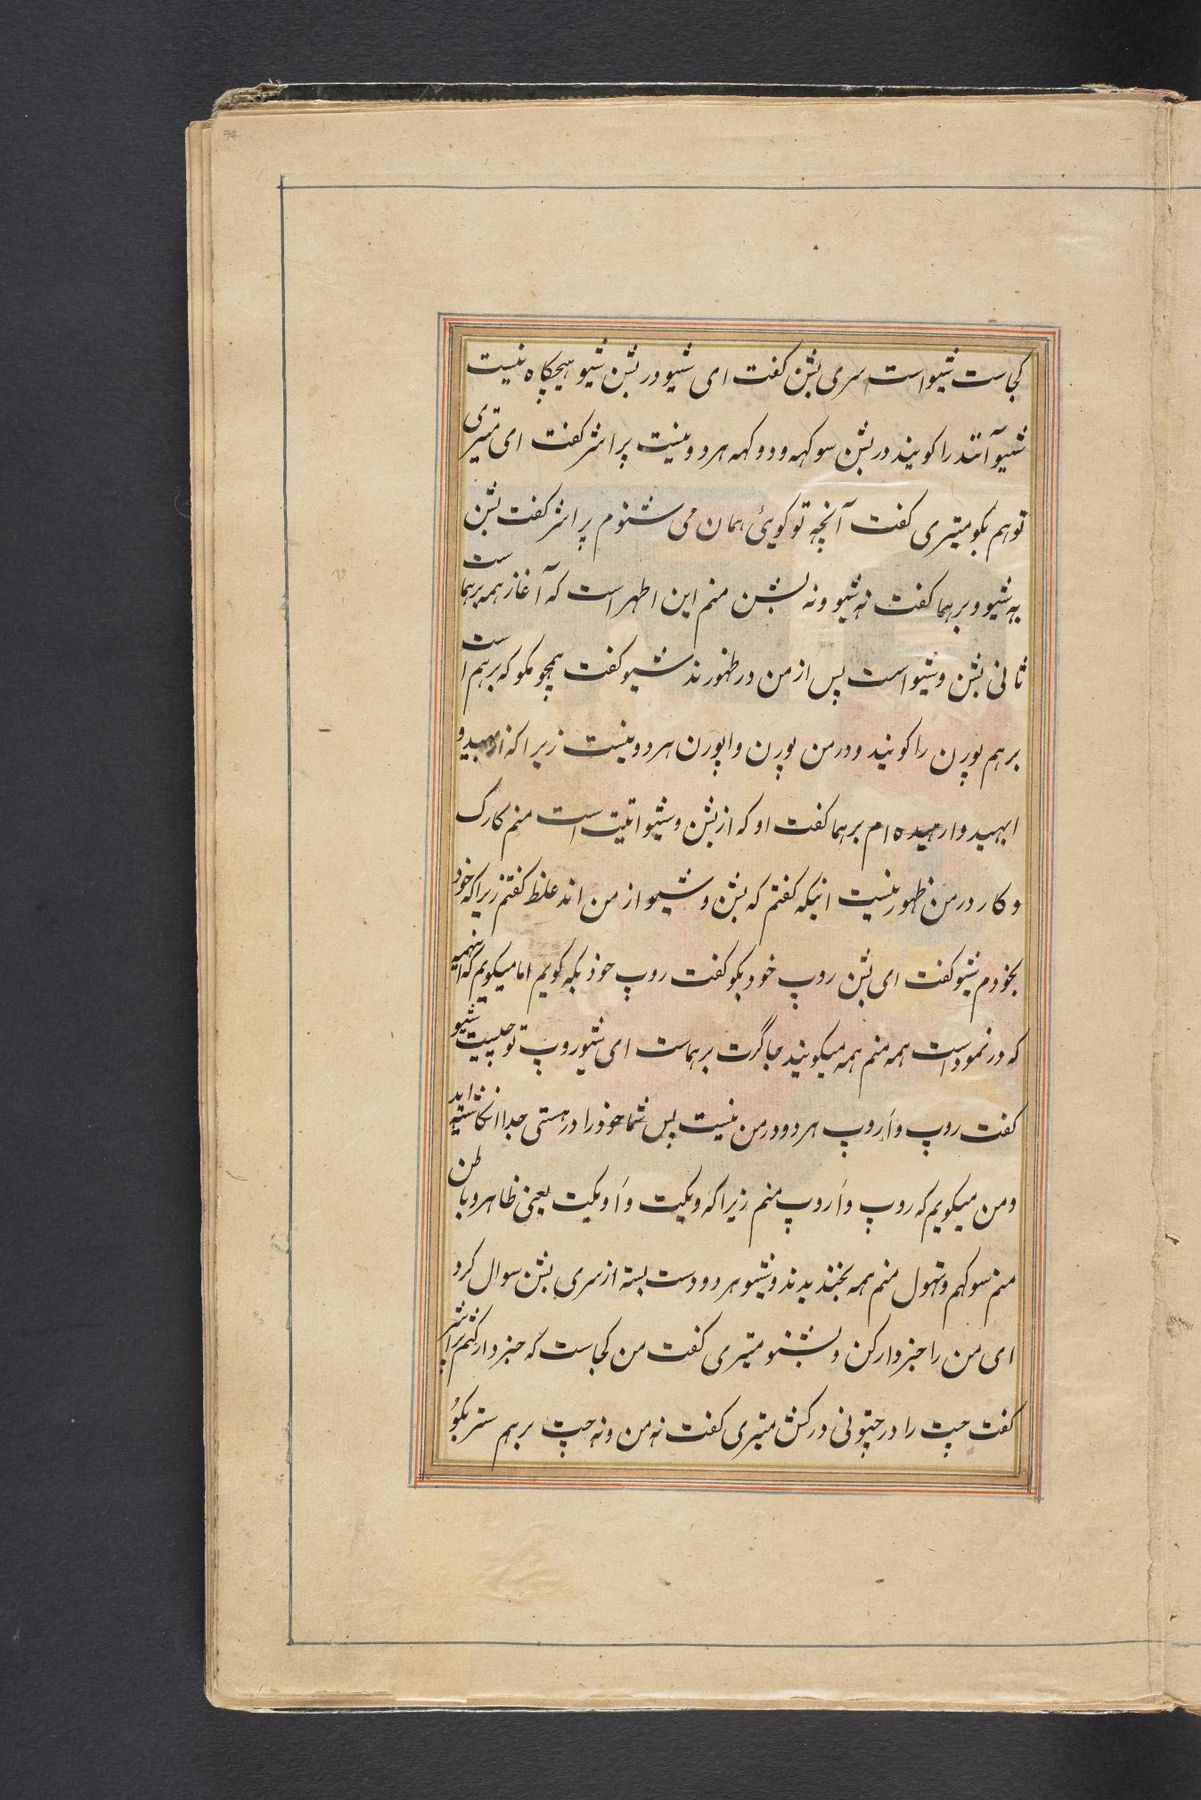 کجاست شیو است سری بشن کفت ای شیو در بشن شیو هیچکاه نیست
شیو آنند را کویند در بشن سوکهه و دوکهه هر دو نیست پراشر کفت ای متیری
تو هم بکو متیری کفت آنچه تو کوئی همان می شنوم پراشر کفت بشن
به شیو و برهما کفت نه شیو و نه بشن منم این اظهر است که آغاز همه برهما ست
ثانی بشن و شیو است پس از من در ظهورند شیو کفت همچو مکو که برهم است
برهم پورن را کویند و در من پورن و اپورن هر دو نیست زیرا که از بهید و
ابهید وارهیده ام برهما کفت او که از بشن و شیو اتیت است منم کارک
و کار در من ظهور نیست اینکه کفتم که بشن و شیو از من اند غلط کفتم زیرا که خود
بخودم شیو کفت ای بشن روپ خود بکو کفت روپ خود بکه کویم اما میکویم که اینهمه
که در نمود است همه منم همه میکویند جاگرت برهماست ای شیو روپ تو چیست شیو
کفت روپ و اَروپ هر دو در من نیست پس شما خود را در هستی جدا انکاشته اید
و من میکویم که روپ و اَروپ منم زیرا که ویکت و اَویکت یعنی ظاهر و باطن
منم سوکهم و تهول منم همه بخندیدند و شیو هر دو دست بسته از سری بشن سوال کرد
ای من را خبردار کن و بشنو متیری کفت من کجاست که خبردار کنم پراشر
کفت چیت را در چپونی در کش متیری کفت نه من و نه چیت برهم ستر بکوُ